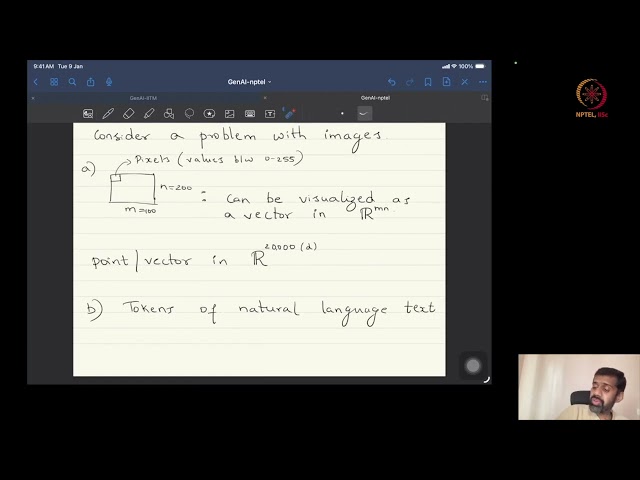 9:41 AM Tue 9 Jan
100%
GenAI-nptel
GenAI-IITM
GenAI-nptel
NPTEL, IISc
Consider a problem with images.
Pixels (values b/w 0-255)
a)
n=200
m=100
: Can be visualized as
a vector in ℝᵐⁿ.
point/vector in ℝ²⁰⁰⁰⁰ ⁽ᵈ⁾
b) Tokens of natural language text